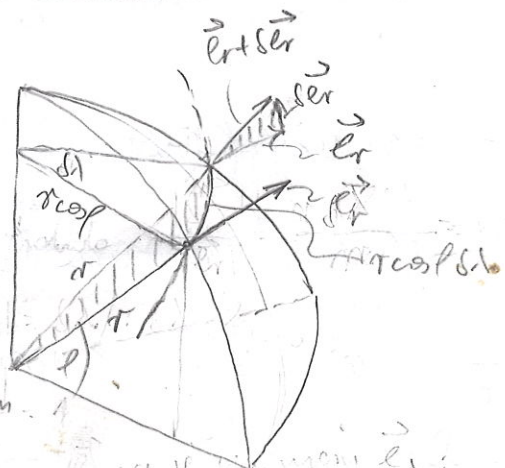 e⃗r+δe⃗r
δe⃗r
e⃗r
δλ
r cosφ
e⃗r
r cosφ δλ
r
r
φ